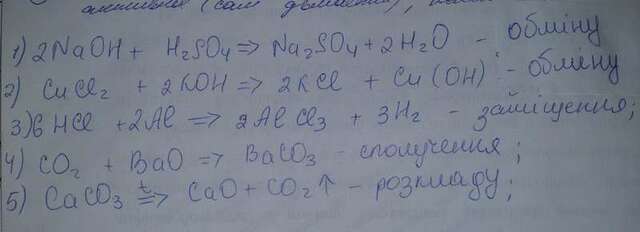 активне (сам
1) 2NaOH + H₂SO₄ => Na₂SO₄ + 2H₂O - обміну
2) CuCl₂ + 2KOH => 2KCl + Cu(OH) - обміну
3) 6HCl + 2Al => 2AlCl₃ + 3H₂ - заміщення;
4) CO₂ + BaO => BaCO₃ - сполучення;
5) CaCO₃ t=> CaO + CO₂↑ - розкладу;